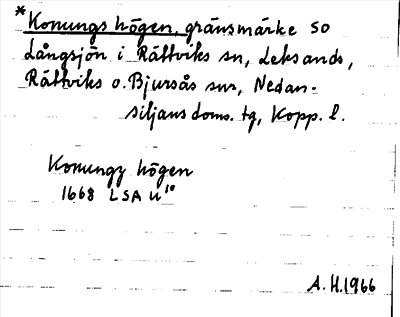 *Konungs högen, gränsmärke SO
Långsjön i Rättviks sn, Leksands,
Rättviks o. Bjursås snr, Nedan-
siljans doms. tg, Kopp. l.
Konungz högen
1668 LSA U¹⁰
A.H.1966